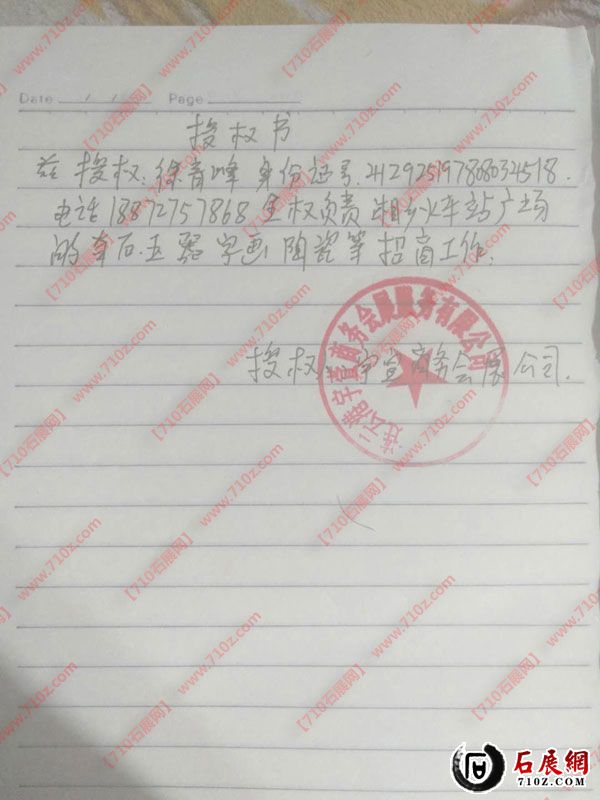 Date / / Page
授权书
兹授权:徐青峰 身份证号.412925197808034518.
电话18872757868全权负责湘乡火车站广场
的奇石.玉器字画陶瓷等招商工作.
授权:宇萱商务会展公司.
连云港宇萱商务会展服务有限公司
【710石展网】 www.710z.com
石展網
710Z.COM